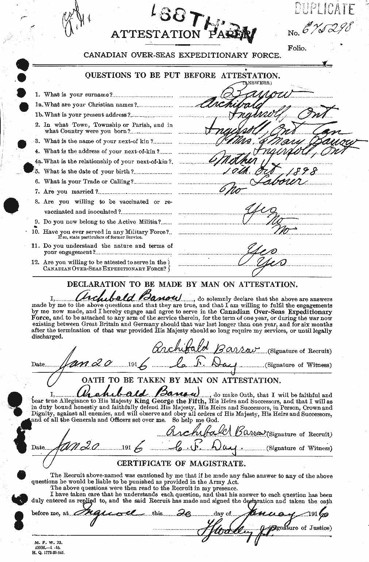 168TH BN
DUPLICATE
ATTESTATION PAPER
No. 675298
Folio.
CANADIAN OVER-SEAS EXPEDITIONARY FORCE.
QUESTIONS TO BE PUT BEFORE ATTESTATION.
(ANSWERS)
1. What is your surname? Barrow
1a. What are your Christian names? Archibald
1b. What is your present address? Ingersoll, Ont
2. In what Town, Township or Parish, and in
what Country were you born? Ingersoll, Ont Can
3. What is the name of your next-of-kin? Mrs Mary Barrow
4. What is the address of your next-of-kin? Ingersoll, Ont
4a. What is the relationship of your next-of-kin? Mother
5. What is the date of your birth? 10th Oct, 1898
6. What is your Trade or Calling? Labourer
7. Are you married? No
8. Are you willing to be vaccinated or re-
vaccinated and inoculated? Yes
9. Do you now belong to the Active Militia? No
10. Have you ever served in any Military Force? No
If so, state particulars of former Service.
11. Do you understand the nature and terms of
your engagement? Yes
12. Are you willing to be attested to serve in the
CANADIAN OVER-SEAS EXPEDITIONARY FORCE? Yes
DECLARATION TO BE MADE BY MAN ON ATTESTATION.
I, Archibald Barrow, do solemnly declare that the above are answers
made by me to the above questions and that they are true, and that I am willing to fulfil the engagements
by me now made, and I hereby engage and agree to serve in the Canadian Over-Seas Expeditionary
Force, and to be attached to any arm of the service therein, for the term of one year, or during the war now
existing between Great Britain and Germany should that war last longer than one year, and for six months
after the termination of that war provided His Majesty should so long require my services, or until legally
discharged.
Archibald Barrow (Signature of Recruit)
Date Jan 20 1916 C. F. Day. (Signature of Witness)
OATH TO BE TAKEN BY MAN ON ATTESTATION.
I, Archibald Barrow, do make Oath, that I will be faithful and
bear true Allegiance to His Majesty King George the Fifth, His Heirs and Successors, and that I will as
in duty bound honestly and faithfully defend His Majesty, His Heirs and Successors, in Person, Crown and
Dignity, against all enemies, and will observe and obey all orders of His Majesty, His Heirs and Successors,
and of all the Generals and Officers set over me. So help me God.
Archibald Barrow (Signature of Recruit)
Date Jan 20 1916 C. F. Day. (Signature of Witness)
CERTIFICATE OF MAGISTRATE.
The Recruit above-named was cautioned by me that if he made any false answer to any of the above
questions he would be liable to be punished as provided in the Army Act.
The above questions were then read to the Recruit in my presence.
I have taken care that he understands each question, and that his answer to each question has been
duly entered as replied to, and the said Recruit has made and signed the declaration and taken the oath
before me, at Ingersoll this 20 day of January 1916
J.P. (Signature of Justice)
M. F. W. 23.